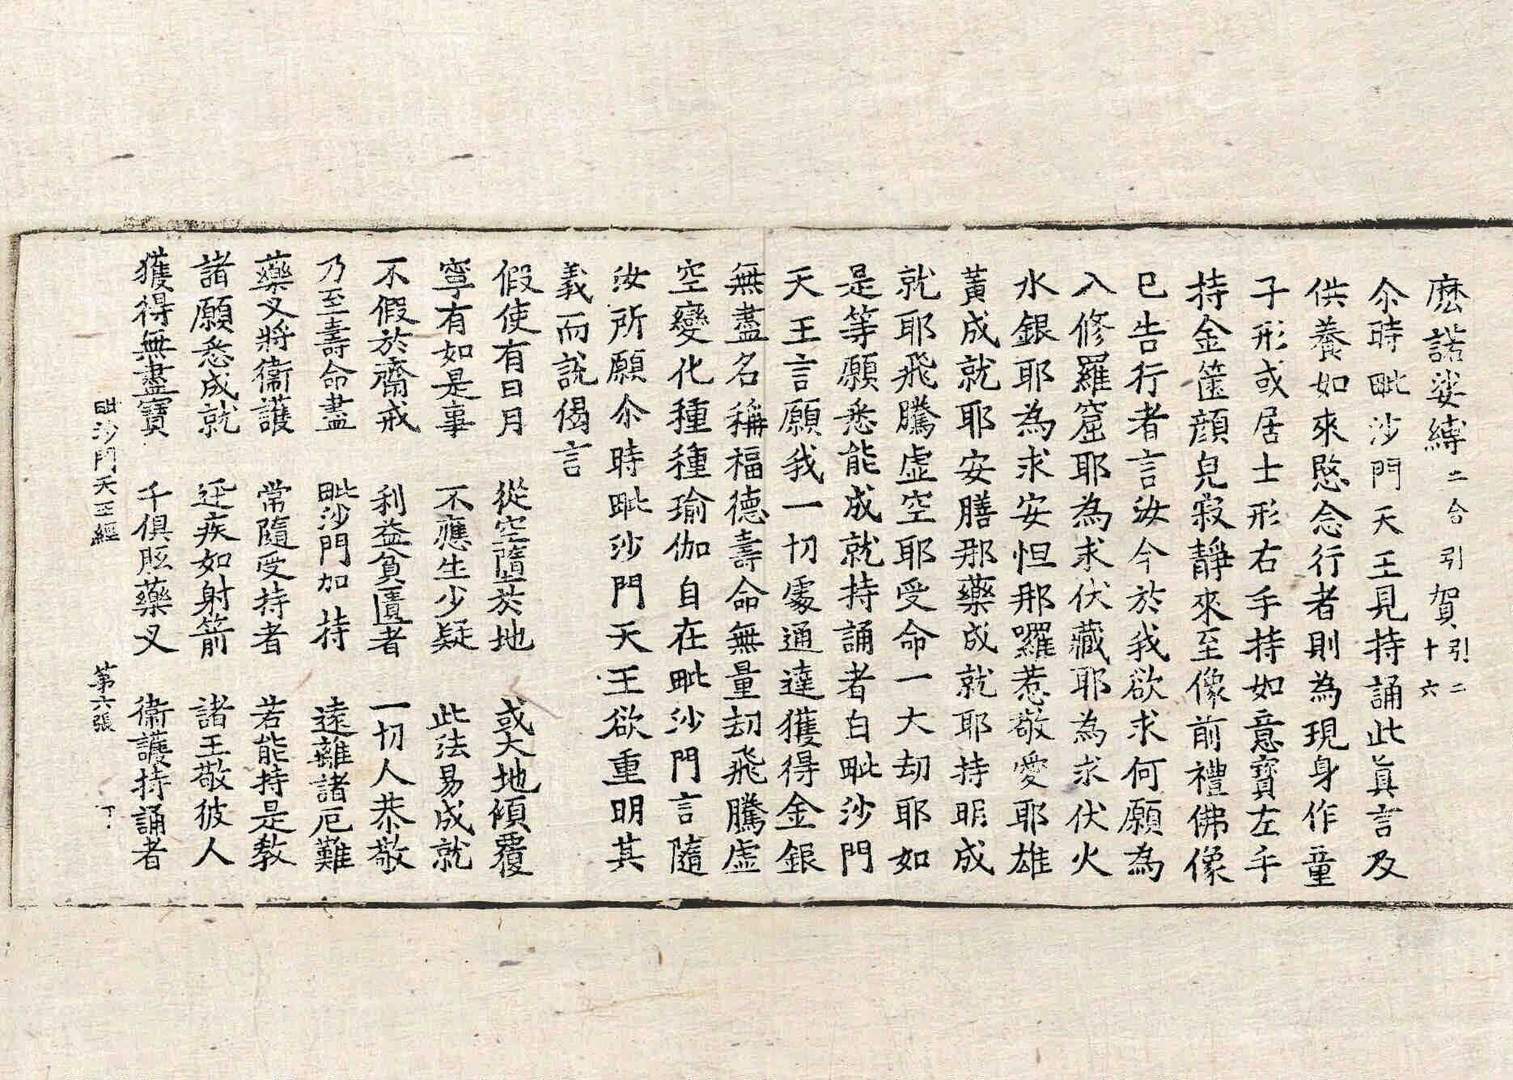 麽諾娑縛二合引賀引二十六
尒時毗沙門天王見持誦此真言及
供養如來愍念行者則為現身作童
子形或居士形右手持如意寶左手
持金篋顔皃寂靜來至像前禮佛像
已告行者言汝今於我欲求何願為
入修羅窟耶為求伏藏耶為求伏火
水銀耶為求安怛那囉惹敬愛耶雄
黃成就耶安膳那藥成就耶持明成
就耶飛騰虛空耶受命一大劫耶如
是等願悉能成就持誦者白毗沙門
天王言願我一切處通達獲得金銀
無盡名稱福德壽命無量劫飛騰虛
空變化種種瑜伽自在毗沙門言隨
汝所願尒時毗沙門天王欲重明其
義而說偈言
假使有日月　從空墮於地　或大地傾覆
寧有如是事　不應生少疑　此法易成就
不假於齋戒　利益貧匱者　一切人恭敬
乃至壽命盡　毗沙門加持　遠離諸厄難
藥叉將衞護　常隨受持者　若能持是教
諸願悉成就　迅疾如射箭　諸王敬彼人
獲得無盡寶　千俱胝藥叉　衞護持誦者
毗沙門天王經　第六張　丁